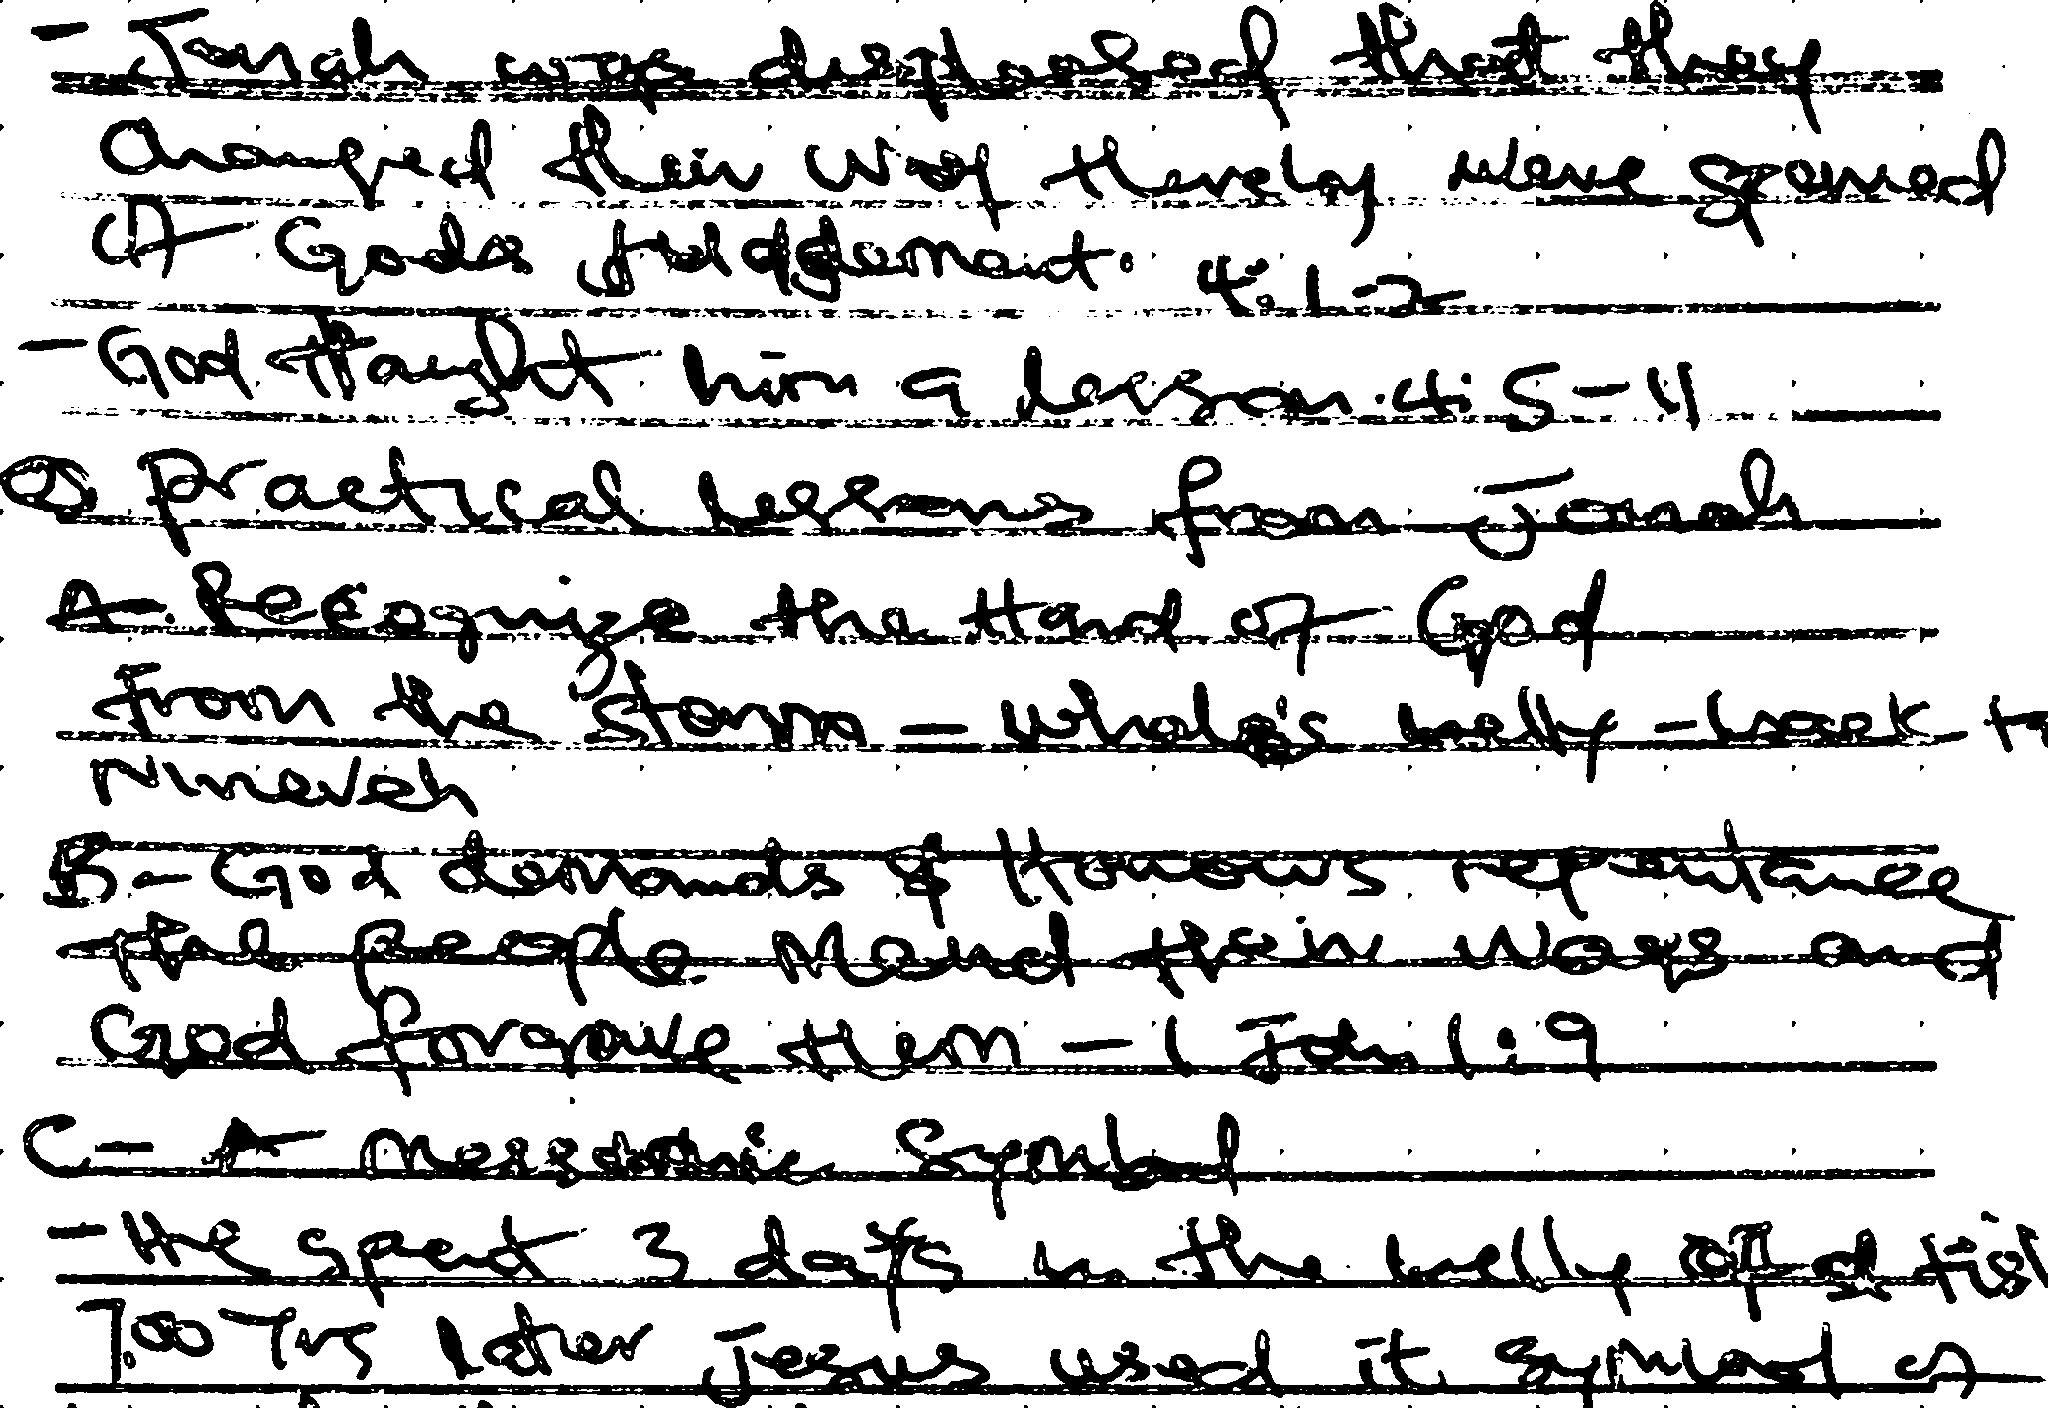 - Jonah was displeased that they
changed their way thereby were spared
of Gods judgement. 4:1-2
- God thaught him a lesson. 4:5-11
practical lessons from Jonah
A. Recognize the Hand of God
from the storm - Whale's belly - back to
Nineveh
B - God demands & Honours repentance
the people mend their ways and
God forgave them - 1 John 1:9
C - A messianic Symbol
- He spent 3 days in the belly of a fish
700 Yrs later Jesus used it symbol of